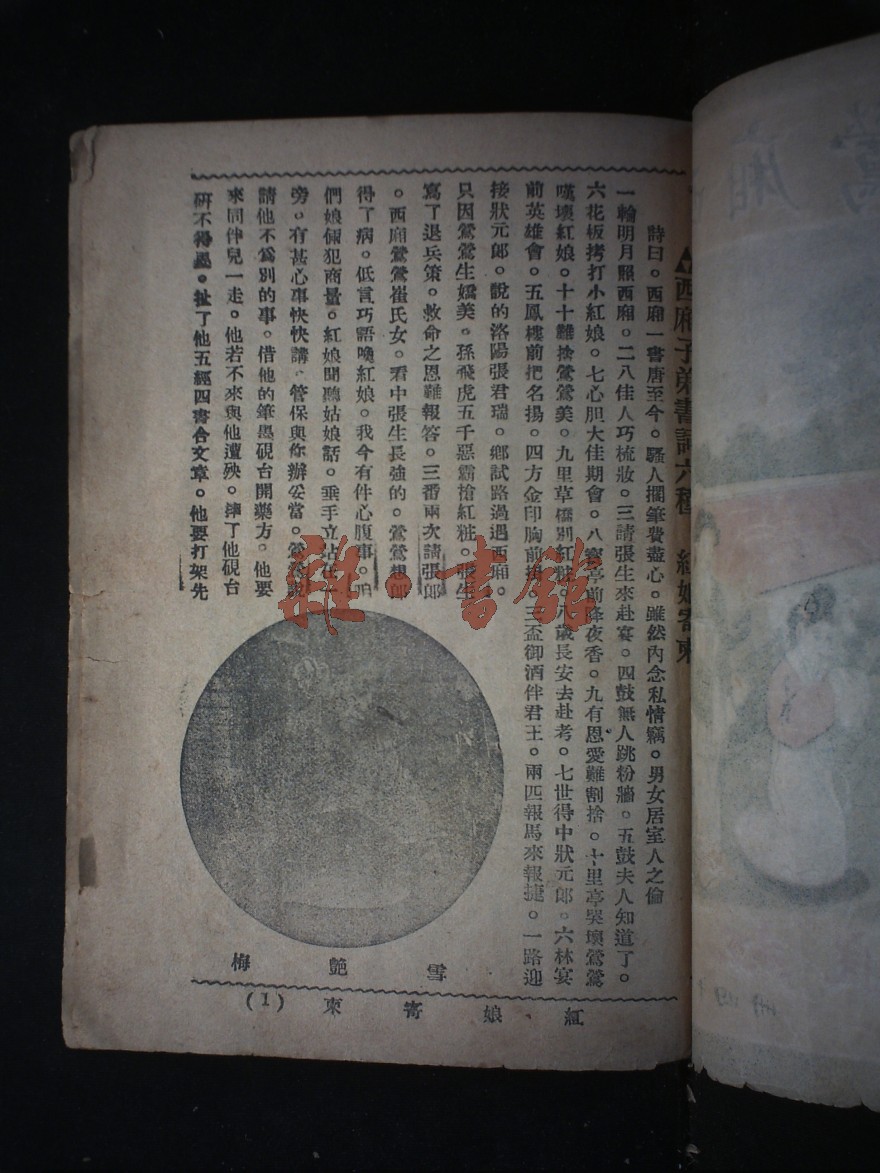 西廂子弟書詞六種　紅娘寄柬
詩曰。西廂一書唐至今。騷人擱筆費盡心。雖然內念私情竊。男女居室人之倫
一輪明月照西廂。二八佳人巧梳妝。三請張生來赴宴。四鼓無人跳粉牆。五鼓夫人知道了。
六花板拷打小紅娘。七心胆大佳期會。八寶亭前降夜香。九有恩愛難割捨。十里亭哭壞鶯鶯
嘆壞紅娘。十十難捨鶯鶯美。九里草橋別紅粧。八歲長安去赴考。七世得中狀元郎。六林宴
前英雄會。五鳳樓前把名揚。四方金印胸前掛。三盃御酒伴君王。兩匹報馬來報捷。一路迎
接狀元郎。說的洛陽張君瑞。鄉試路過遇西廂。
只因鶯鶯生嬌美。孫飛虎五千惡霸搶紅粧。張生
寫了退兵策。救命之恩難報答。三番兩次請張郎
。西廂鶯鶯崔氏女。看中張生長強的。鶯鶯想郎
得了病。低言巧語喚紅娘。我今有件心腹事。咱
們娘倆犯商量。紅娘聞聽姑娘話。垂手立站在一
旁。有甚心事快快講。管保與你辦妥當。鶯鶯說
請他不爲別的事。借他的筆墨硯台開藥方。他要
來同伴兒一走。他若不來與他遭殃。摔了他硯台
研不得墨。扯了他五經四書合文章。他要打架先
雪艶梅
紅娘寄柬 (1)
雜·書館
廂